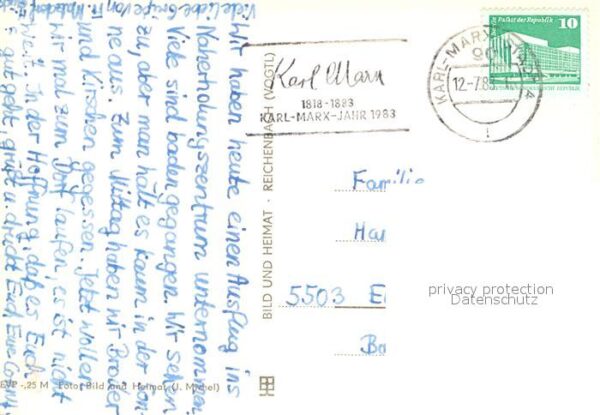 Viele liebe Grüße von
Wir haben heute einen Ausflug ins
Naherholungszentrum unternommen.
Viele sind baden gegangen. Wir sehen
zu, aber man hält es kaum in der Son-
ne aus. Zum Mittag haben wir Broiler
und Kirschen gegessen. Jetzt wollen
wir mal zum Dorf laufen, es ist nicht
weit. In der Hoffnung, daß es Euch
gut geht, grüßt u. drückt Euch Eure
EVP -,25 M Foto: Bild und Heimat (J. Michel)
BILD UND HEIMAT · REICHENBACH (VOGTL)
Karl Marx
1818-1883
KARL-MARX-JAHR 1983
KARL-MARX-STADT
12.-7.8
Palast der Republik 10
Familie
Ha
5503 E
Ba
privacy protection
Datenschutz